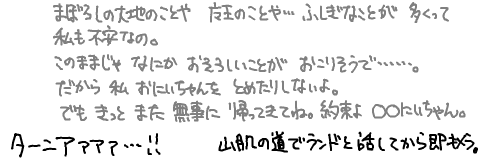 まぼろしの大地のことや 魔王のことや… ふしぎなことが 多くって
私も不安なの。
このままじゃ なにか おそろしいことが おこりそうで……。
だから 私 おにいちゃんを とめたりしないよ。
でも きっと また 無事に 帰ってきてね。約束よ ○○にいちゃん。
ターニアァァァ…!! 山肌の道でランドと話してから即もろ。